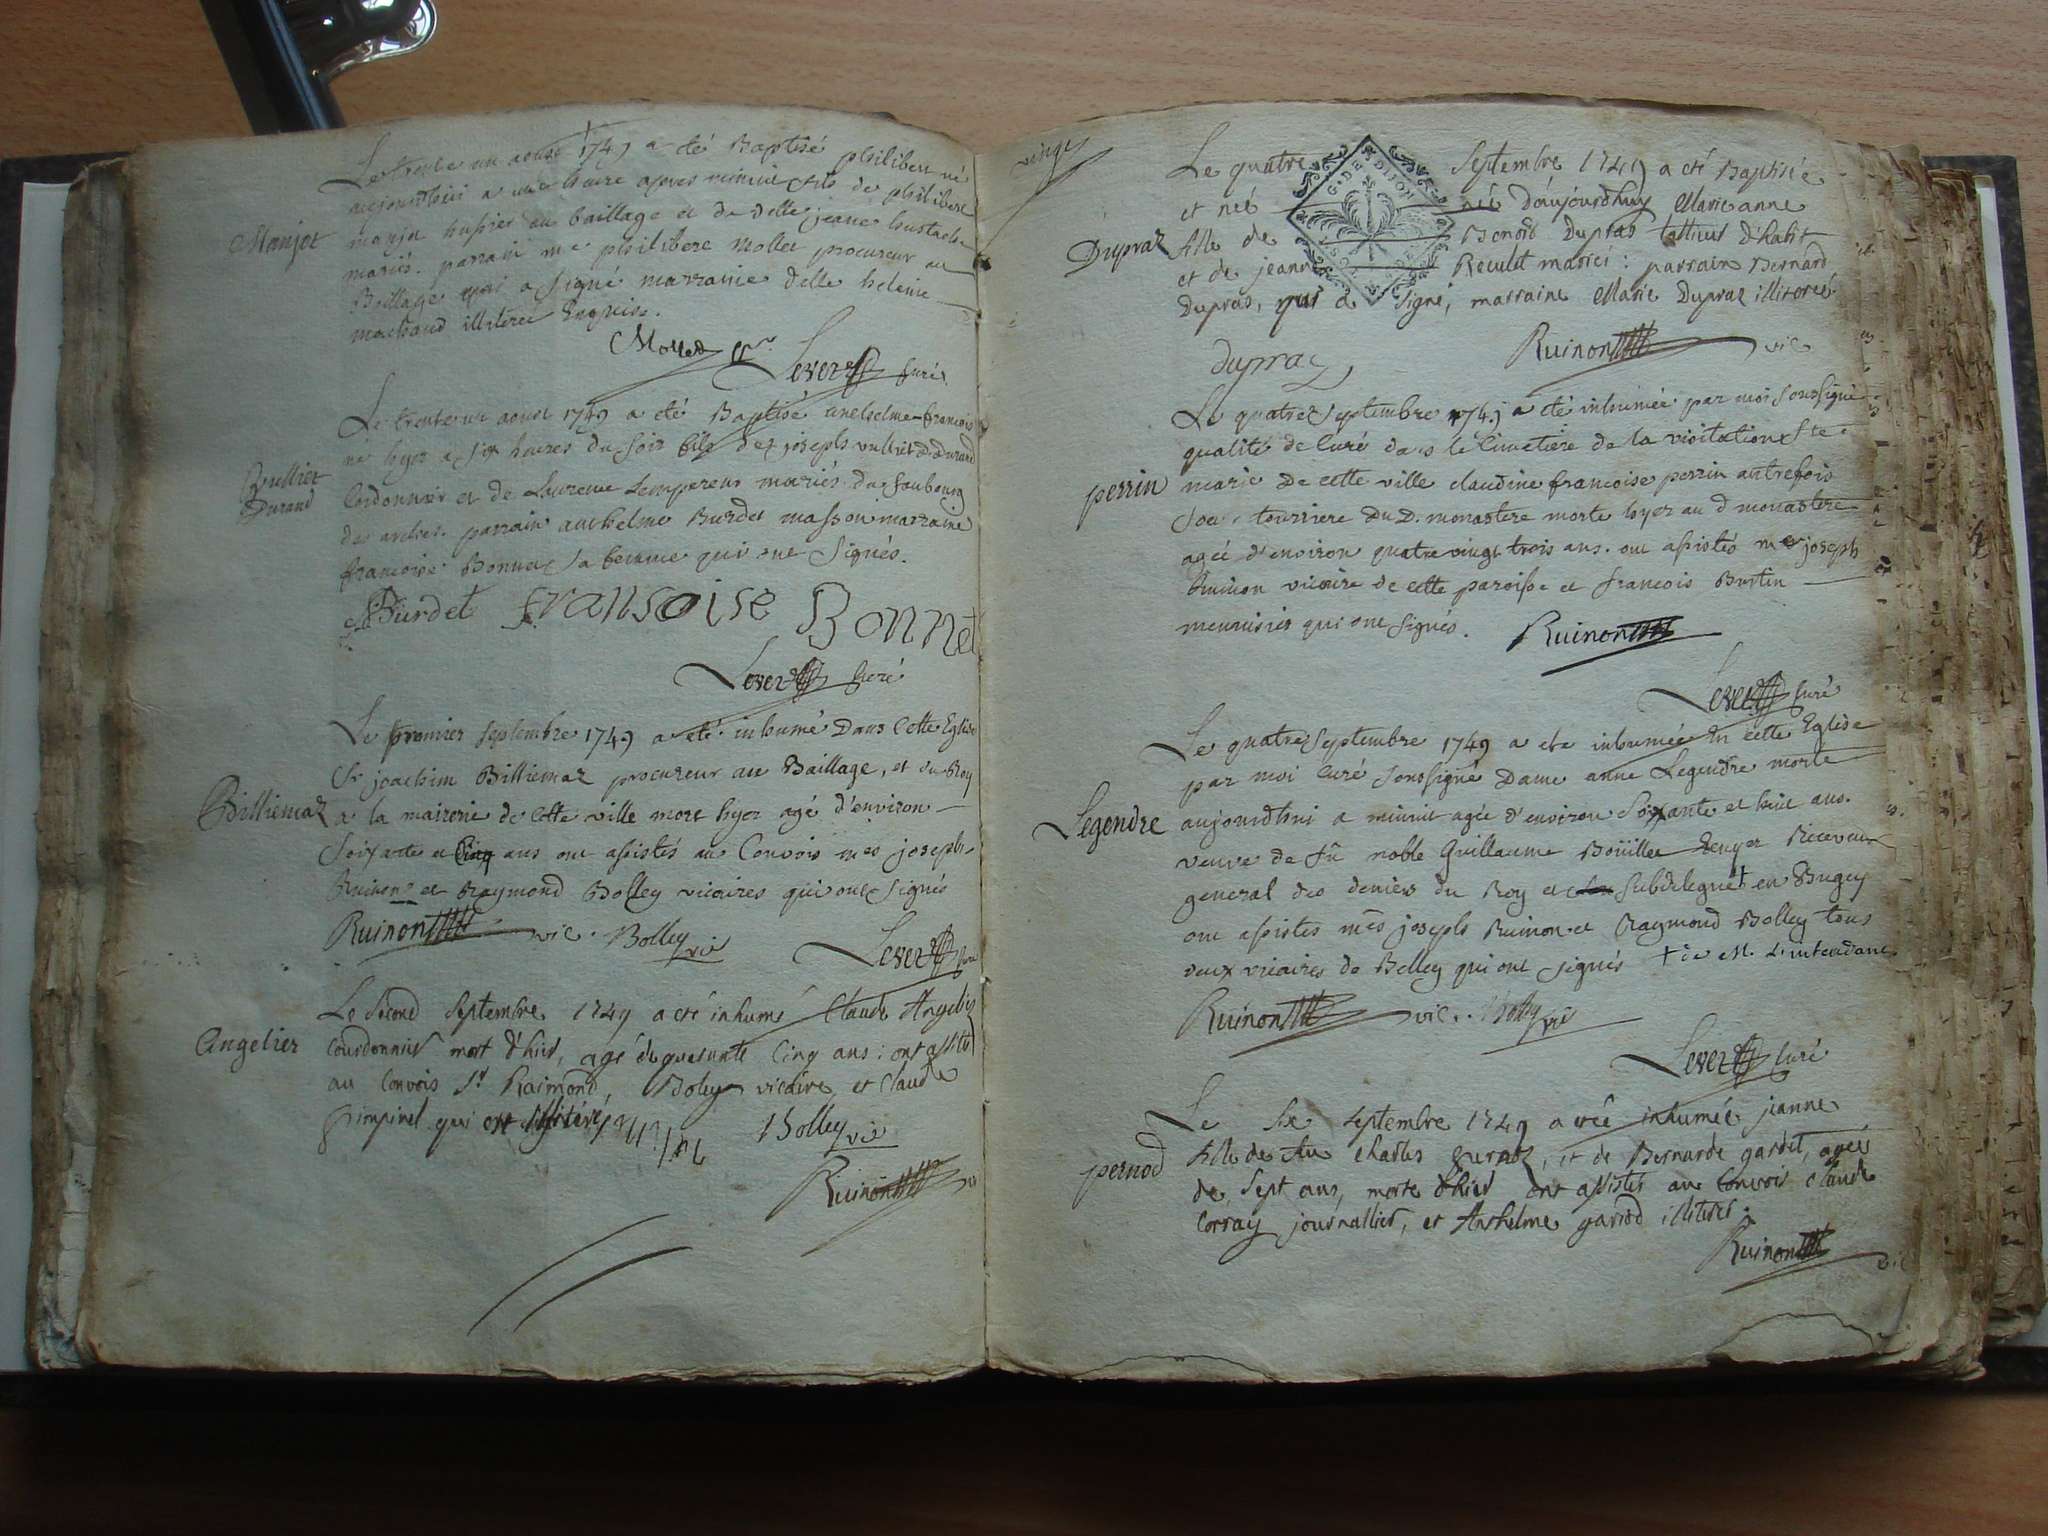 Manjot
Le trente un aoust 1749 a eté Baptisé philibert né
aujourdhui a une heure apres minuit fils de philibert
manjot huissier au baillage et de delle jeane
mariés. parrain me philibert Mollet procureur au
Baillage qui a signé marraine delle helenie
illiterée Enquise.
Mollet
Levez curé
Vulliet
Durand
Le trente un aoust 1749 a eté Baptisé anthelme francois
né hyer a six heures du soir fils de joseph vulliet D. Durand
Cordonnier et de Laurence Lempereur mariés du faubourg
des parrain anthelme Burdet masson marraine
francoise Bonnet sa femme qui ont signés.
Burdet fransoise Bonnet
Levez Curé
Billiemaz
Le premier septembre 1749 a eté inhumé Dans Cette Eglise
Sr joachim Billiemaz procureur au Baillage, et du Roy
a la mairerie de Cette ville mort hyer agé d'environ
soixante et Cinq ans ont assistés au Convois mes joseph
Ruinon et Raymond Bolley vicaires qui ont signés
Ruinon vic. Bolley vic
Levez curé
Angelier
Le second septembre 1749 a eté inhumé Claude Angelier
courdonnier mort d'hier, agé de quarante Cinq ans; ont assisté
au convois Sr Raimond, Boley vicaire et Claude
Pimpinel qui
Bolley vic
Ruinon
vingt
Dupraz
Le quatre Septembre 1749 a eté Baptisée
et née née d'aujourdhuy Marie anne
fille de Benoid Dupras tallieur d'habit
et de jeanne Reculet mariés: parrain Bernard
Dupras, qui a signé, marraine Marie Dupraz illiterée
Ruinon vic
dupraz
perrin
Le quatre septembre 1749 a eté inhumée par moi soussigné
qualité de Curé dans le Cimetière de la visitation Ste
marie De cette ville claudine francoise perrin autrefois
soeur tourriere Du D. monastere morte hyer au d monastere
agée d'environ quatre vingt trois ans. ont assistés mes joseph
Ruinon vicaire de cette paroisse et francois Burtin
menuisier qui ont signés. Ruinon
Levez Curé
Legendre
Le quatre septembre 1749 a ete inhumée En cette Eglise
par moi Curé soussigné Dame anne Legendre morte
aujourdhui a minuit agée d'environ soixante et huit ans.
veuve de fû noble Guillaume Boüillet Receveur
general des deniers du Roy et subdelegué † en Bugey
ont assistés mes joseph Ruinon et Raymond Bolley tous
deux vicaires de Belley qui ont signés † de M. L'intendant
Ruinon vic. Bolley vic
Levez Curé
pernod
Le six septembre 1749 a eté inhumée jeanne
fille de feu Charles pernod, et de Bernarde gardet, agée
de sept ans, morte d'hier ont assistés au Convois Claude
Corray journallier, et Anthelme gariod illiterés.
Ruinon vic
G. DE DIJON